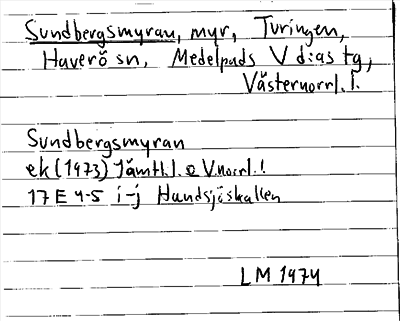 Sundbergsmyran, myr, Turingen,
Haverö sn, Medelpads V d:as tg,
Västernorrl. l.
Sundbergsmyran
ek (1973) Jämtl. o V.norrl. l.
17 E 4-5 i-j Hundsjöskallen
LM 1974